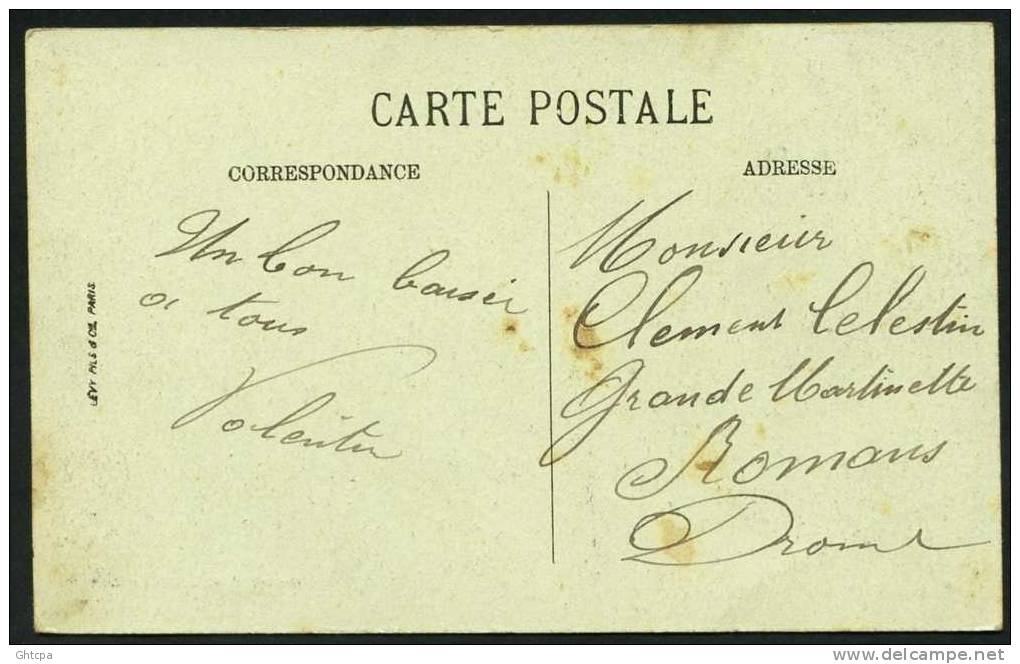 CARTE POSTALE
CORRESPONDANCE
Un bon baiser
a tous
Valentin
ADRESSE
Monsieur
Clement Celestin
Grande Martinette
Romans
Drome
LEVY FILS & Cie, PARIS.
Ghtcpa
delcampe.net